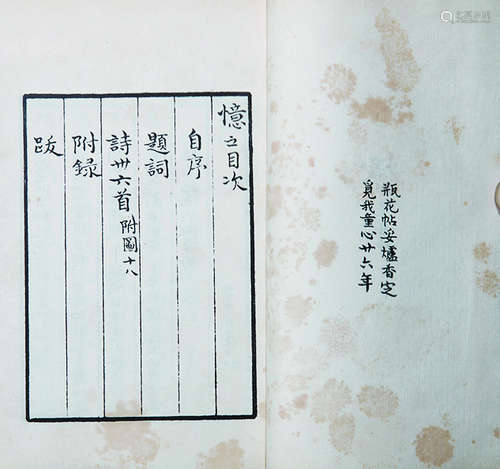 瓶花帖妥爐香定
覓我童心廿六年
憶之目次
自序
題詞
詩卅六首 附圖十八
附錄
跋